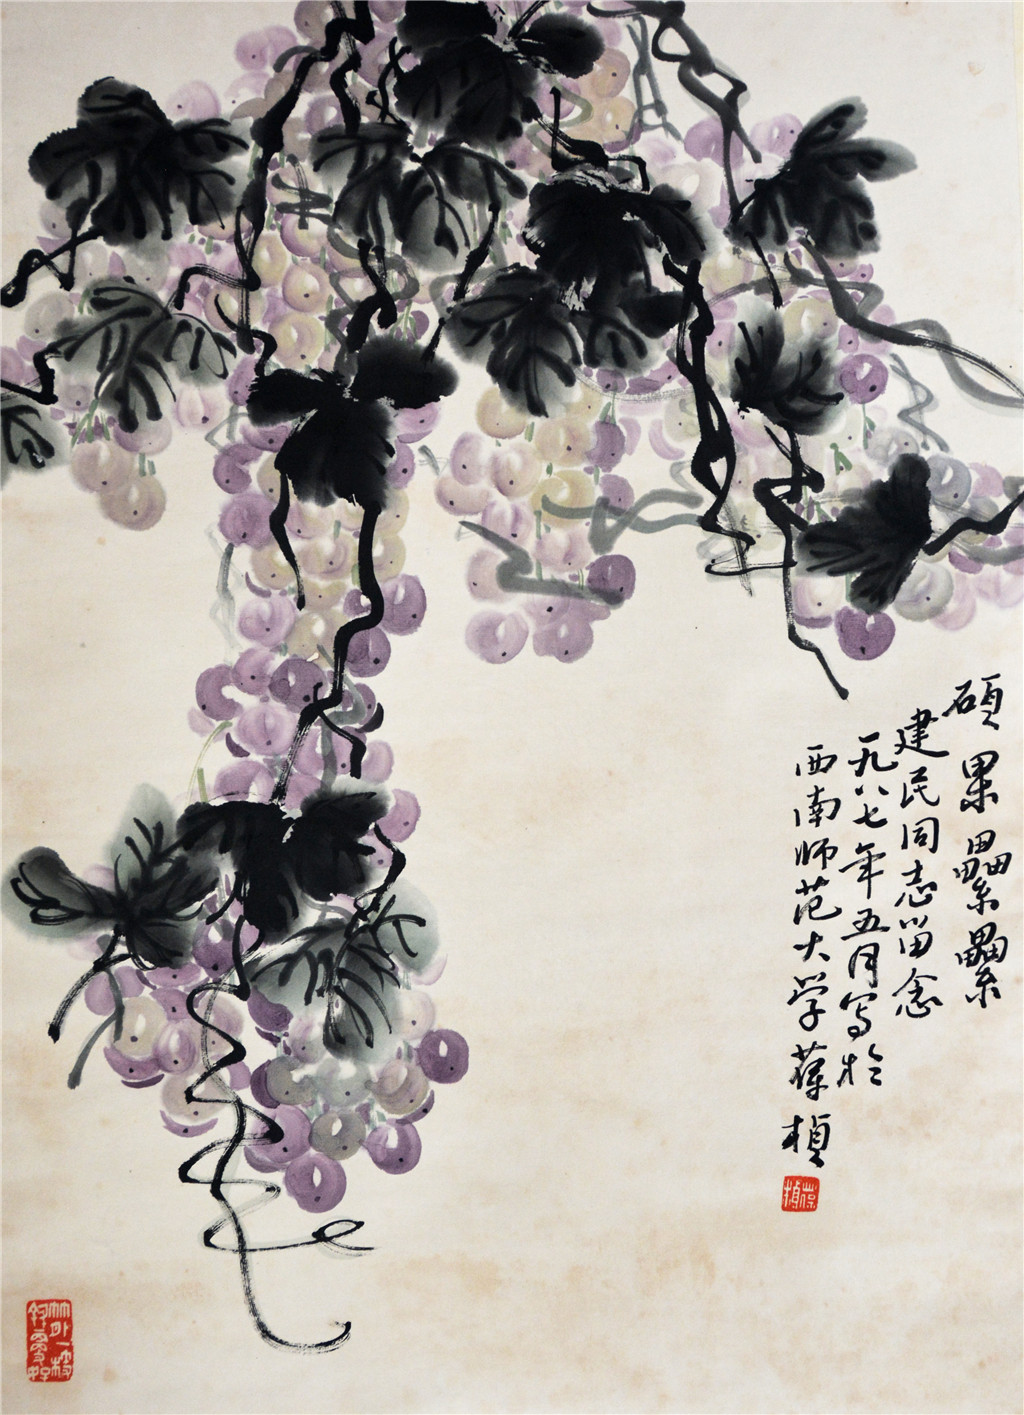 硕果累累
建民同志留念
一九八七年五月写於
西南师范大学苏桢